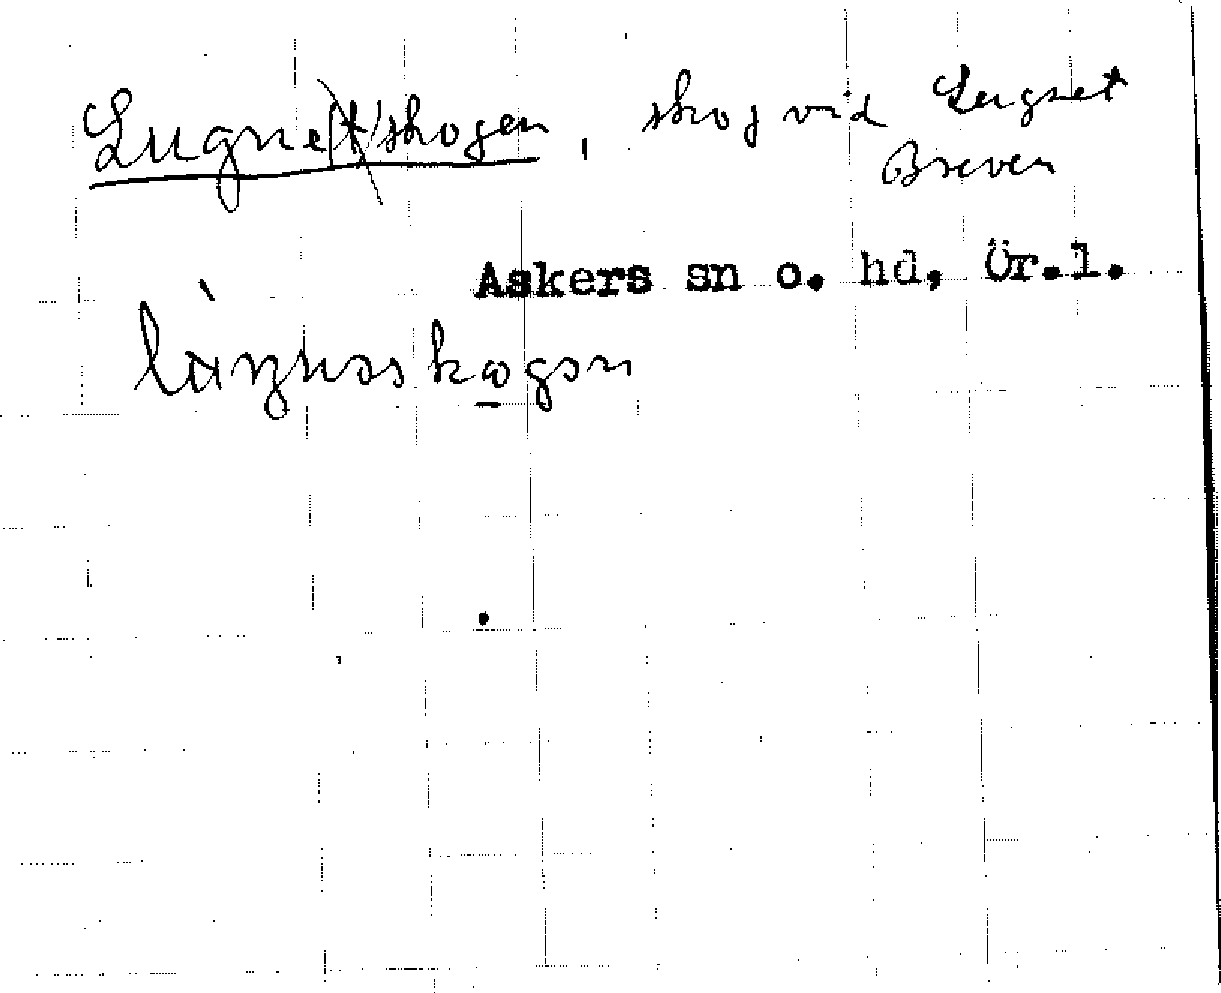 Lugne(t)skogen, skog vid Lugnet
Breven
Askers sn o. hd, Ör.l.